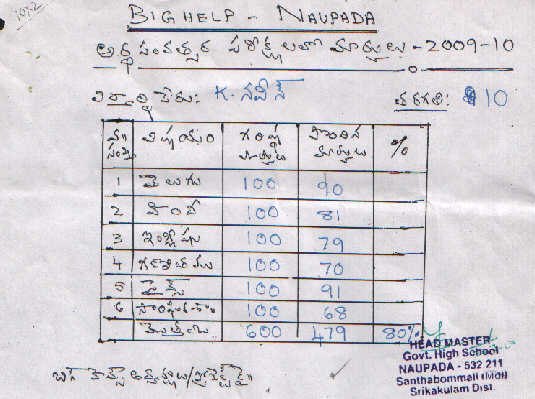 1072
BIG HELP - NAUPADA
అర్థ సంవత్సర పరీక్షలలో మార్కులు - 2009-10
విద్యార్థి పేరు: K. నవీన్ తరగతి: 10
విషయం గరిష్ట మార్కులు పొందిన మార్కులు %
1 తెలుగు 100 90
2 హిందీ 100 81
3 ఇంగ్లీషు 100 79
4 గణితము 100 70
5 సైన్స్ 100 91
6 100 68
మొత్తం 600 479 80%
HEAD MASTER
Govt. High School
NAUPADA - 532 211
Santhabommali (Mdl)
Srikakulam Dist.